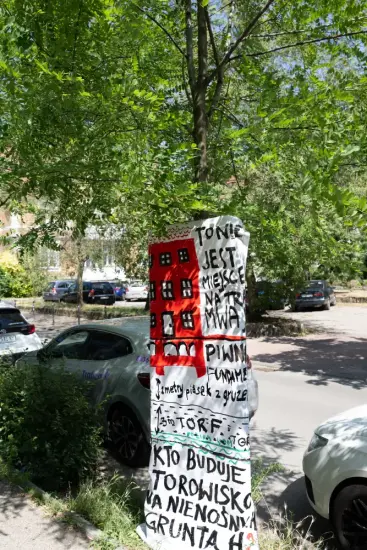 TO NIE
JEST
MIEJSCE
NA TR
MWA
PIWN
FUNDAME
3 metry piasek z gruze
TORF
KTO BUDUJE
TOROWISKO
NA NIENOŚNYCH
GRUNTACH?